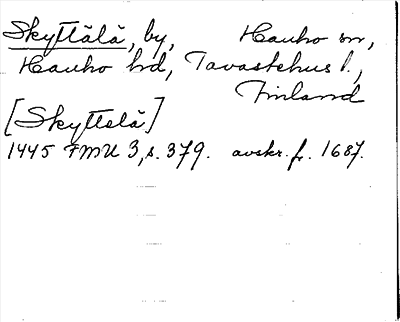 Skyttälä, by, Hauho sn,
Hauho hd, Tavastehus l.,
Finland
[Skyttelä]
1445 FMU 3, s. 379. avskr. fr. 1687.